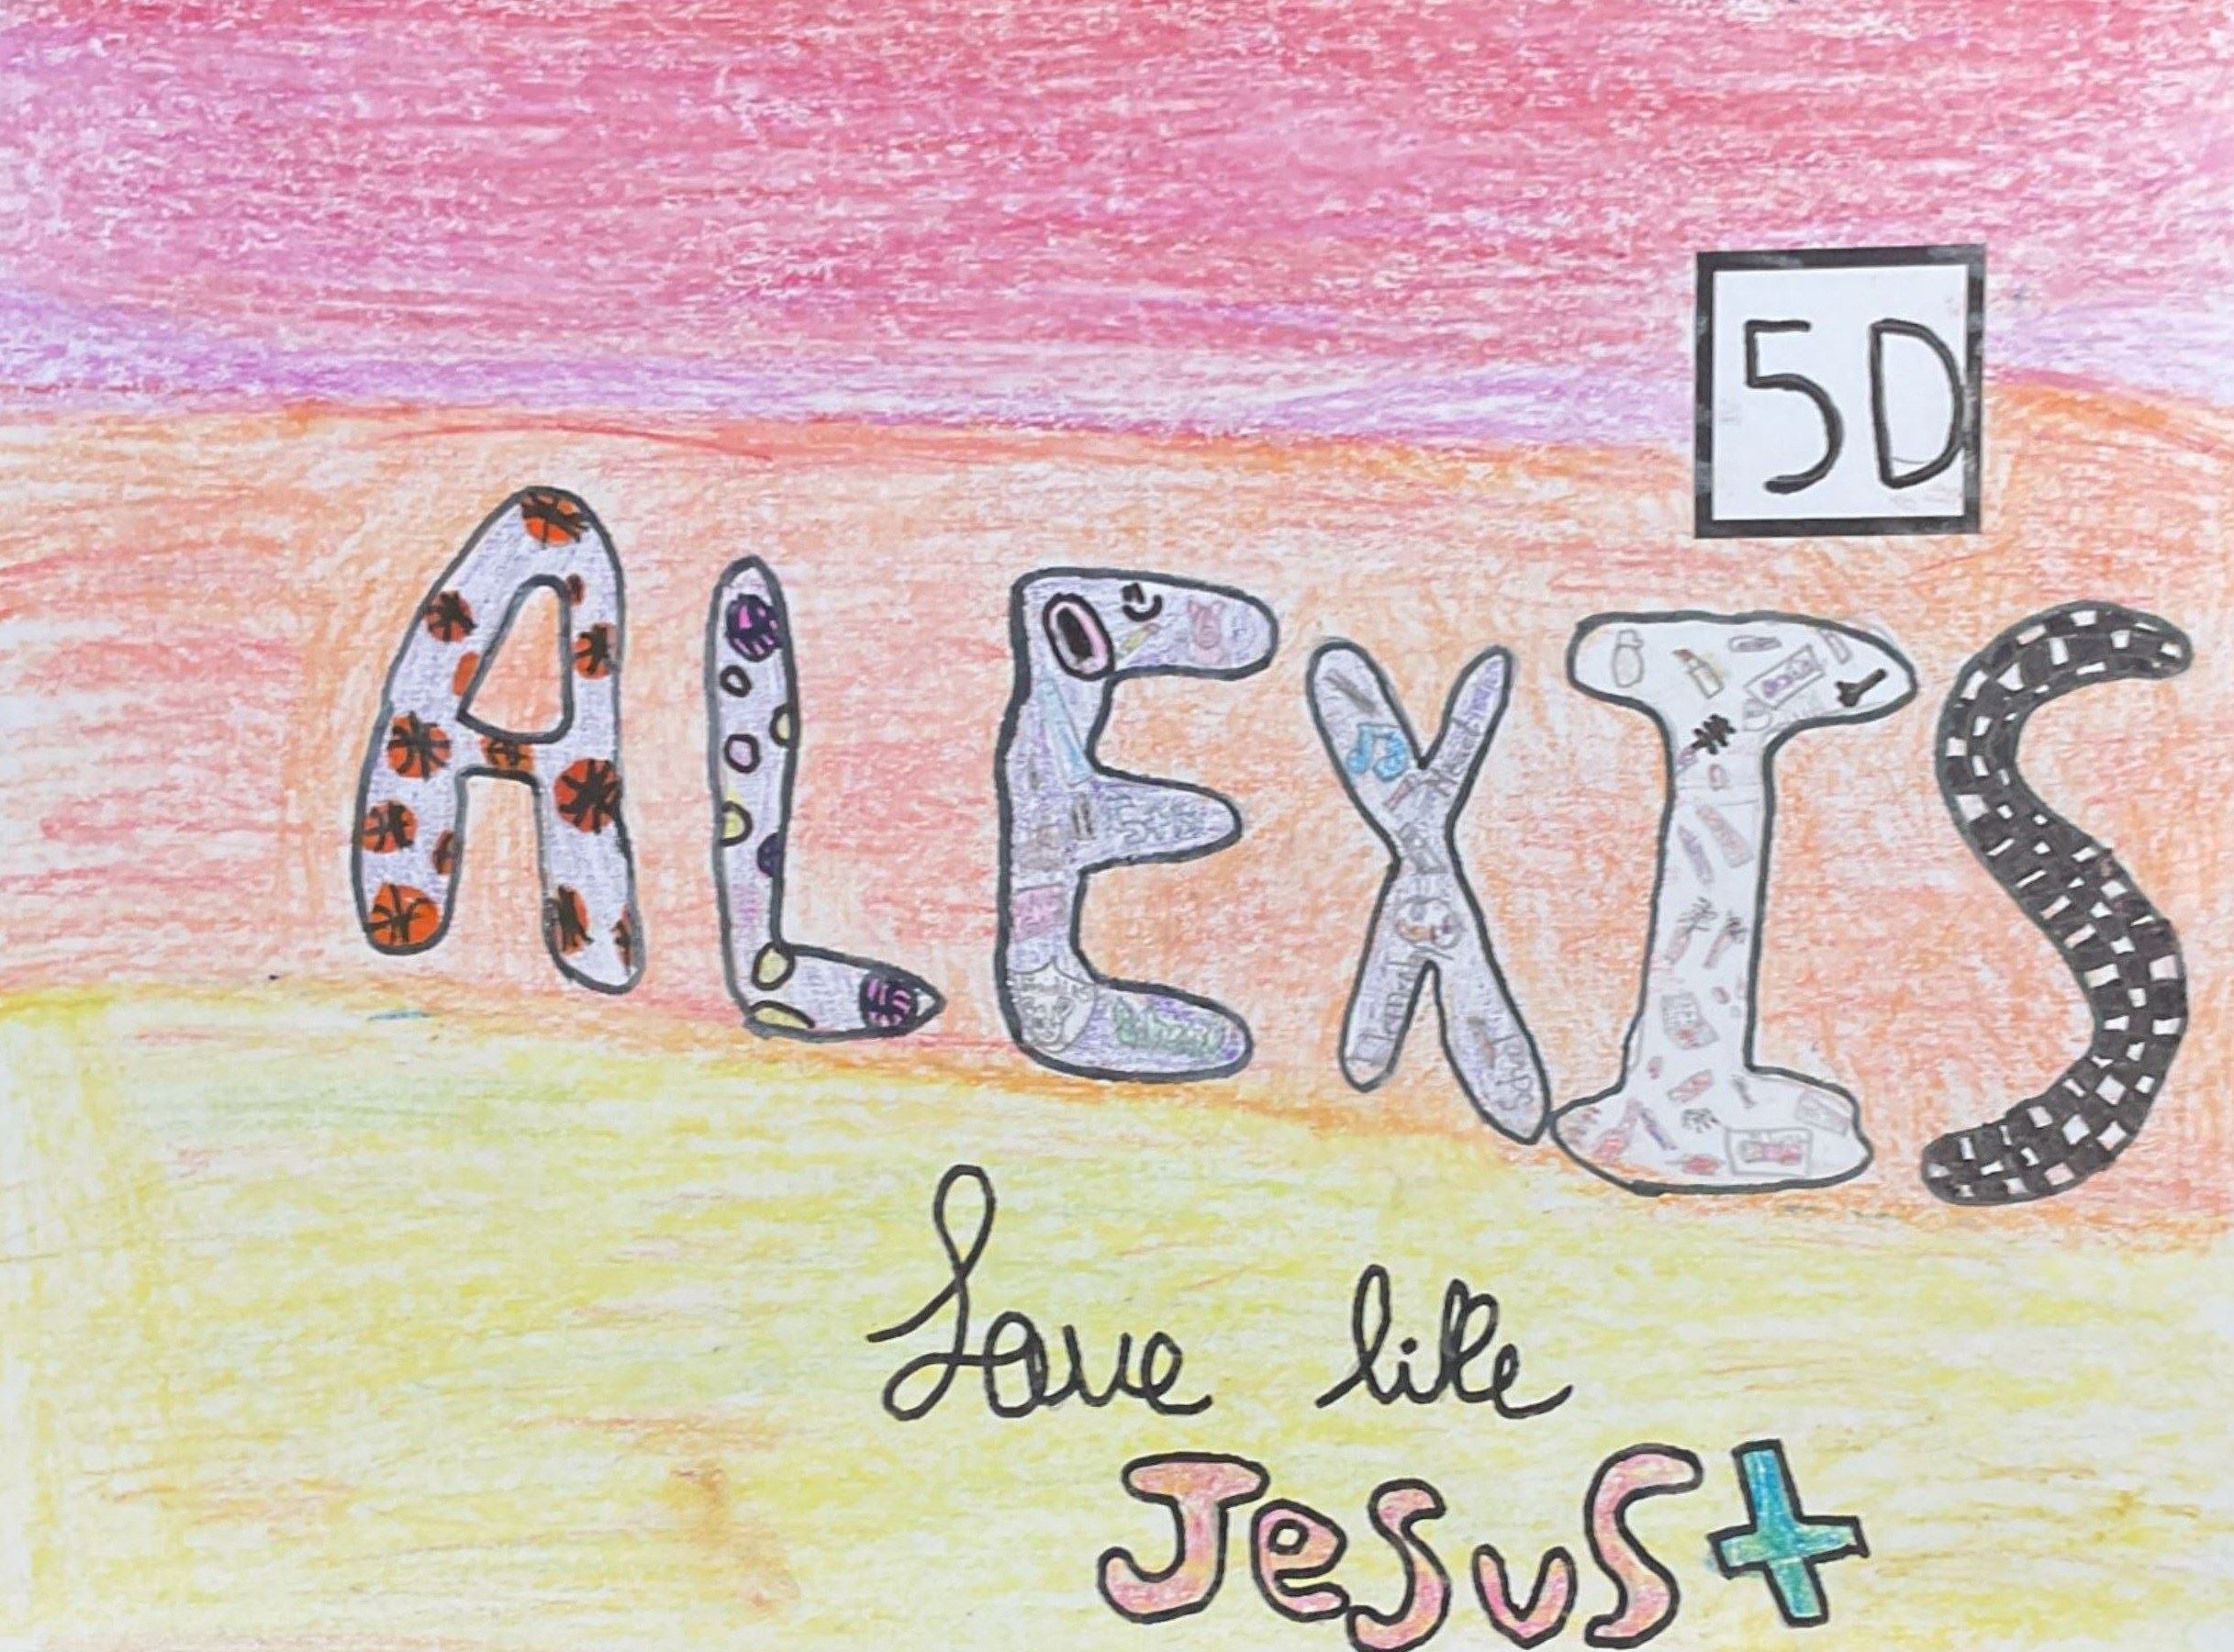 5D
ALEXIS
Love like
Jesus